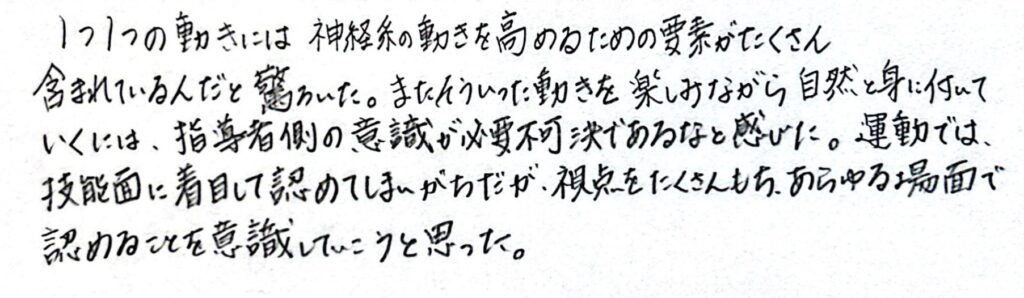 1つ1つの動きには 神経系の動きを高めるための要素がたくさん
含まれているんだと驚ろいた。またそういった動きを楽しみながら自然と身に付いて
いくには、指導者側の意識が必要不可決であるなと感じた。運動では、
技能面に着目して認めてしまいがちだが、視点をたくさんもち、あらゆる場面で
認めることを意識していこうと思った。